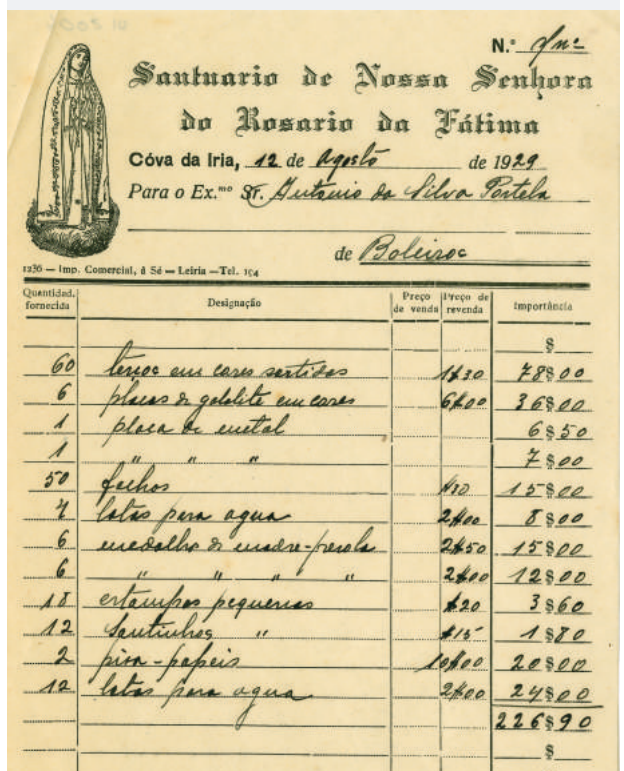 N.º
Santuario de Nossa Senhora
do Rosario da Fátima
Cóva da Iria, 12 de Agosto de 1929
Para o Ex.mo Sr. Antonio da Silva Portela
de Boleiros
1236 — Imp. Comercial, á Sé — Leiria — Tel. 194
Quantidade fornecida Designação Preço de venda Preço de revenda Importância
$
60 terços em cores sortidas 1$30 78$00
6 placas de galalite em cores 6$00 36$00
1 placa de metal 6$50
1 " " " 7$00
50 $30 15$00
4 latas para agua 2$00 8$00
6 medalhas de madre-perola 2$50 15$00
6 " " " " 2$00 12$00
18 estampas pequenas $20 3$60
12 Santinhos " $15 1$80
2 pisa-papeis 10$00 20$00
12 latas para agua 2$00 24$00
226$90
$